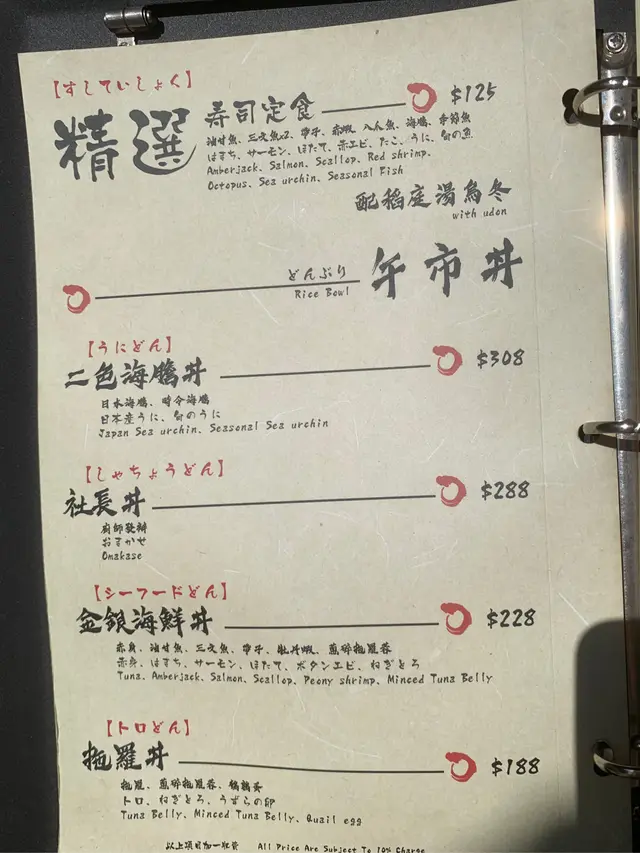 【すしていしょく】
精選 寿司定食 $125
油甘魚、三文魚x2、帶子、赤蝦、八爪魚、海膽、季節魚
はまち、サーモン、ほたて、赤エビ、たこ、うに、旬の魚
Amberjack、Salmon、Scallop、Red shrimp、
Octopus、Sea urchin、Seasonal Fish
配稻庭湯烏冬
with udon
どんぶり
Rice Bowl
午市丼
【うにどん】
二色海膽丼 $308
日本海膽、時令海膽
日本産うに、旬のうに
Japan Sea urchin、Seasonal Sea urchin
【しゃちょうどん】
社長丼 $288
廚師發辦
おまかせ
Omakase
【シーフードどん】
金銀海鮮丼 $228
赤身、油甘魚、三文魚、帶子、牡丹蝦、蔥碎拖羅蓉
赤身、はまち、サーモン、ほたて、ボタンエビ、ねぎとろ
Tuna、Amberjack、Salmon、Scallop、Peony shrimp、Minced Tuna Belly
【トロどん】
拖羅丼 $188
拖羅、蔥碎拖羅蓉、鵪鶉蛋
トロ、ねぎとろ、うずらの卵
Tuna Belly、Minced Tuna Belly、Quail egg
以上項目加一收費 All Price Are Subject To 10% Charge